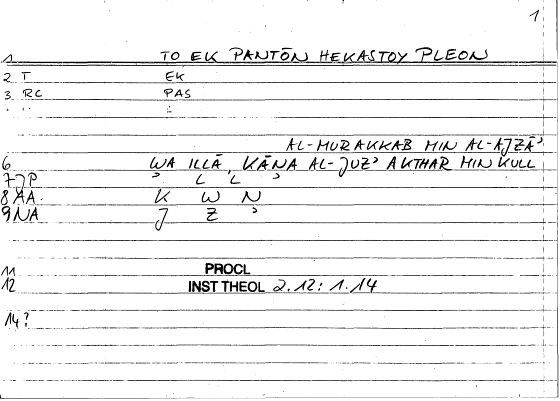 1
1 TO EK PANTŌN HEKASTOY PLEON
2 T EK
3 RC PAS
AL-MURAKKAB MIN AL-AJZĀʾ
6 WA ILLĀ, KĀNA AL-JUZʾ AKTHAR MIN KULL
7 JP ʾ L L ʾ
8 AA K W N
9 NA J Z ʾ
11 PROCL
12 INST THEOL 2.12: 1.14
14?